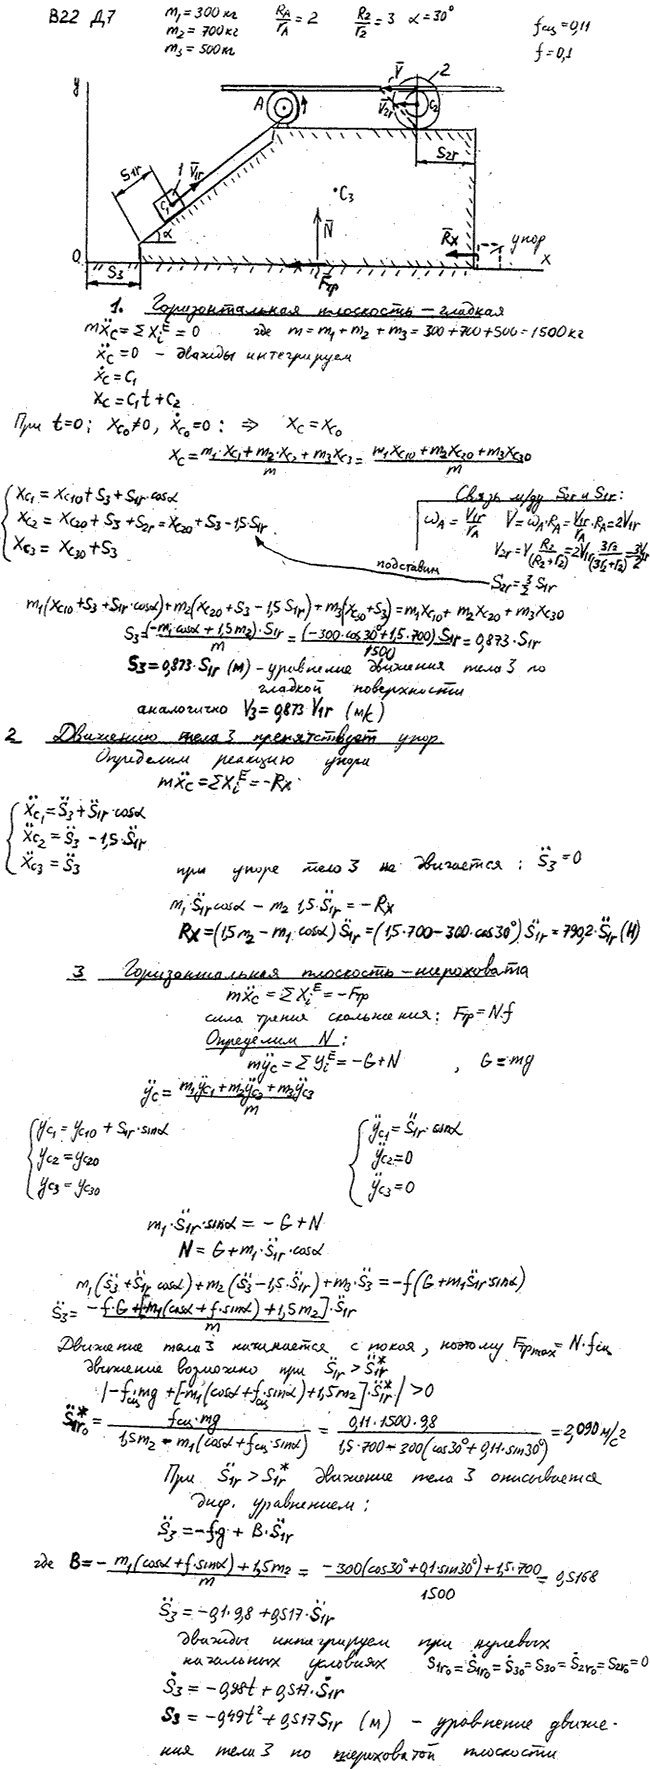 В22 Д7 m₁=300 кг R_A/r_A=2 R₂/r₂=3 α=30° f_сц=0,11
m₂=700 кг
m₃=500 кг f=0,1
y
A V̄ 2
V̄₂r C₂
S₁r 1 V̄₁r S₂r
C₁ •C₃
N̄
α R̄x упор
O S₃ F̄тр x
1. Горизонтальная плоскость – гладкая
mẍ_C=ΣX_i^E=0 где m=m₁+m₂+m₃=300+700+500=1500 кг
ẍ_C=0 – дважды интегрируем
ẋ_C=C₁
x_C=C₁t+C₂
При t=0: x_C₀≠0, ẋ_C₀=0: ⇒ x_C=x_C₀
x_C=(m₁·x_C₁+m₂·x_C₂+m₃x_C₃)/m=(m₁x_C10+m₂x_C20+m₃x_C30)/m
x_C₁=x_C10+S₃+S₁r·cosα Связь м/ду S₂r и S₁r:
x_C₂=x_C20+S₃+S₂r=x_C20+S₃-1,5·S₁r ω_A=V₁r/r_A V=ω_A·R_A=V₁r/r_A·R_A=2V₁r
x_C₃=x_C30+S₃ V₂r=V R₂/(R₂+r₂)=2V₁r 3r₂/(3r₂+r₂)=3V₁r/2
подставим
S₂r=3/2 S₁r
m₁(x_C10+S₃+S₁r·cosα)+m₂(x_C20+S₃-1,5S₁r)+m₃(x_C30+S₃)=m₁x_C10+m₂x_C20+m₃x_C30
S₃=(-m₁cosα+1,5m₂)·S₁r/m=(-300·cos30°+1,5·700)S₁r/1500=0,873·S₁r
S₃=0,873·S₁r (м) – уравнение движения тела 3 по
гладкой поверхности
аналогично V₃=0,873 V₁r (м/с)
2 Движению тела 3 препятствует упор.
Определим реакцию упора
mẍ_C=ΣX_i^E=-Rx
ẍ_C₁=S̈₃+S̈₁r·cosα
ẍ_C₂=S̈₃-1,5·S̈₁r
ẍ_C₃=S̈₃
при упоре тело 3 не двигается: S̈₃=0
m₁S̈₁r cosα-m₂ 1,5·S̈₁r=-Rx
Rx=(1,5m₂-m₁cosα)S̈₁r=(1,5·700-300·cos30°)S̈₁r=790,2·S̈₁r (Н)
3 Горизонтальная плоскость – шероховата
mẍ_C=ΣX_i^E=-Fтр
сила трения скольжения: Fтр=N·f
Определим N:
mÿ_C=ΣY_i^E=-G+N , G=mg
ÿ_C=(m₁ÿ_C₁+m₂ÿ_C₂+m₃ÿ_C₃)/m
y_C₁=y_C10+S₁r·sinα ÿ_C₁=S̈₁r·sinα
y_C₂=y_C20 ÿ_C₂=0
y_C₃=y_C30 ÿ_C₃=0
m₁·S̈₁r·sinα=-G+N
N=G+m₁·S̈₁r·cosα
m₁(S̈₃+S̈₁r cosα)+m₂(S̈₃-1,5·S̈₁r)+m₃·S̈₃=-f(G+m₁S̈₁r sinα)
S̈₃=(-f·G+[-m₁(cosα+f·sinα)+1,5m₂]·S̈₁r)/m
Движение тела 3 начинается с покоя, поэтому Fтр max=N·f_сц
движение возможно при S̈₁r>S̈₁r*
|-f_сц·mg+[-m₁(cosα+f_сц·sinα)+1,5m₂]·S̈₁r*|>0
S̈₁r₀*=f_сц·mg/(1,5m₂-m₁(cosα+f_сц·sinα))=0,11·1500·9,8/(1,5·700-300(cos30°+0,11·sin30°))=2,090 м/с²
При S̈₁r>S̈₁r* движение тела 3 описывается
диф. уравнением:
S̈₃=-fg+B·S̈₁r
где B=(-m₁(cosα+f·sinα)+1,5m₂)/m=(-300(cos30°+0,1·sin30°)+1,5·700)/1500=0,5168
S̈₃=-0,1·9,8+0,517·S̈₁r
дважды интегрируем при нулевых
начальных условиях S₁r₀=Ṡ₁r₀=Ṡ₃₀=S₃₀=Ṡ₂r₀=S₂r₀=0
Ṡ₃=-0,98t+0,517·Ṡ₁r
S₃=-0,49t²+0,517S₁r (м) – уравнение движе-
ния тела 3 по шероховатой плоскости